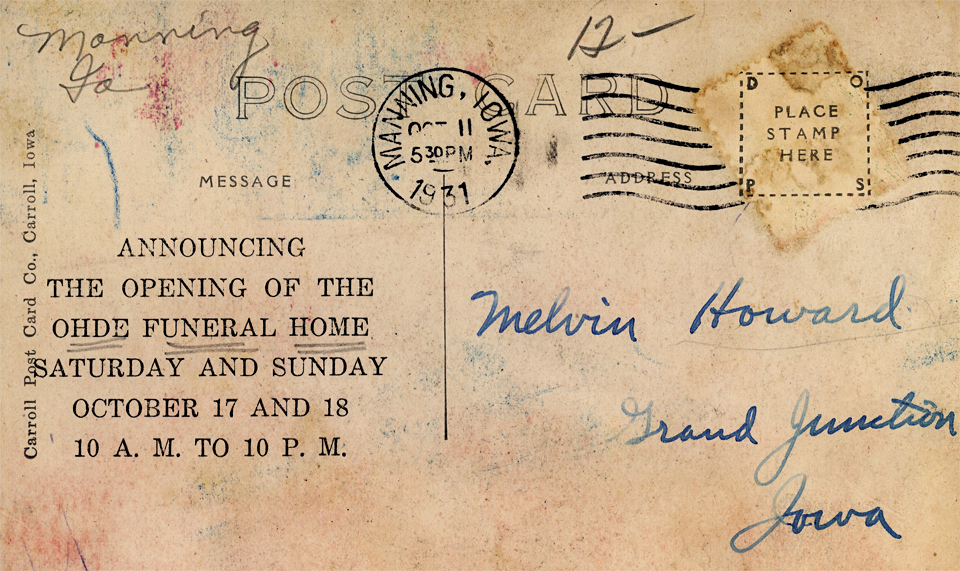 Manning
Ia
12-
POST CARD
MANNING, IOWA.
OCT 11
5 30 PM
1931
D O
PLACE
STAMP
HERE
P S
MESSAGE
ADDRESS
Carroll Post Card Co., Carroll, Iowa.
ANNOUNCING
THE OPENING OF THE
OHDE FUNERAL HOME
SATURDAY AND SUNDAY
OCTOBER 17 AND 18
10 A. M. TO 10 P. M.
Melvin Howard
Grand Junction
Iowa